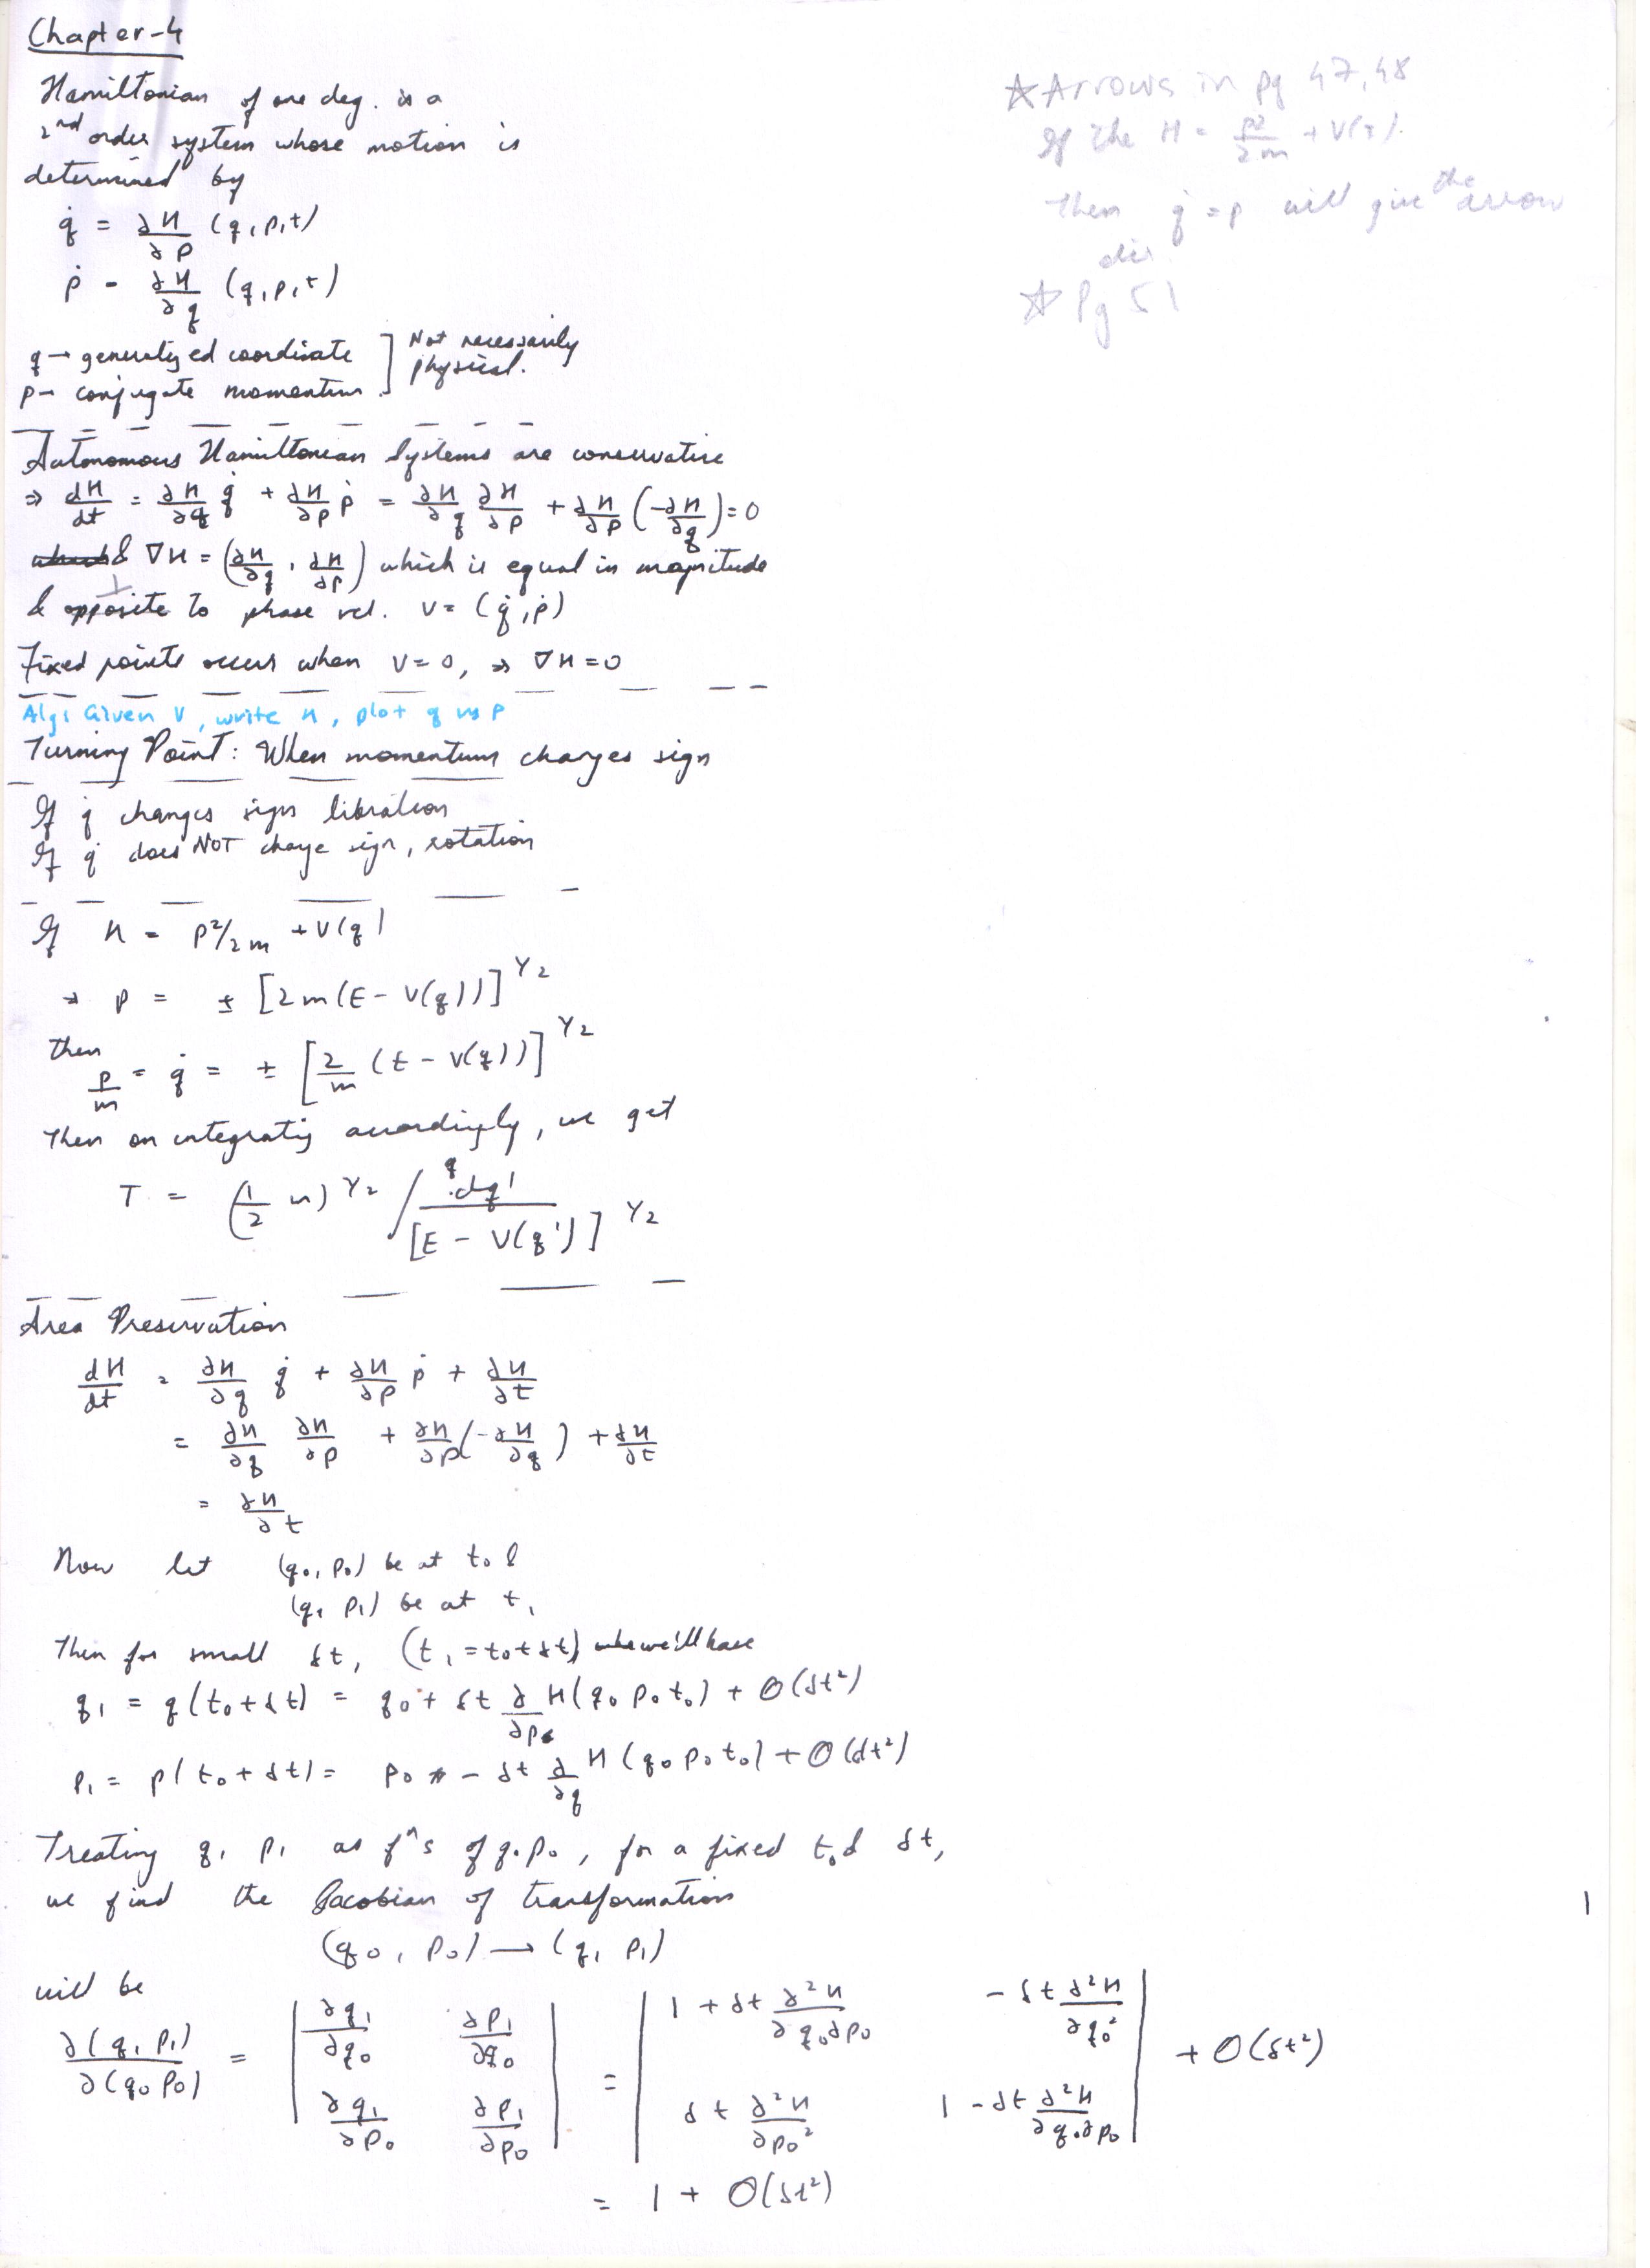 Chapter-4
Hamiltonian of one deg. is a
2nd order system whose motion is
determined by
q̇ = ∂H/∂p (q,p,t)
ṗ = ∂H/∂q (q,p,t)
q → generalized coordinate ] Not necessarily
p → conjugate momentum ] physical.
Autonomous Hamiltonian Systems are conservative
⇒ dH/dt = ∂H/∂q q̇ + ∂H/∂p ṗ = ∂H/∂q ∂H/∂p + ∂H/∂p (-∂H/∂q) = 0
& ∇H = (∂H/∂q , ∂H/∂p) which is equal in magnitude
⊥
& opposite to phase vel. v = (q̇, ṗ)
Fixed points occur when v = 0, ⇒ ∇H = 0
Alg: Given V, write H, plot q vs p
Turning Point: When momentum changes sign
If q̇ changes sign libration
If q̇ does NOT change sign, rotation
If H = p²/2m + V(q)
⇒ p = ± [2m(E - V(q))]^1/2
then
p/m = q̇ = ± [2/m (E - V(q))]^1/2
Then on integratig accordingly, we get
T = (1/2 m)^1/2 ∫^q dq' / [E - V(q')]^1/2
Area Preservation
dH/dt = ∂H/∂q q̇ + ∂H/∂p ṗ + ∂H/∂t
= ∂H/∂q ∂H/∂p + ∂H/∂p (-∂H/∂q) + ∂H/∂t
= ∂H/∂t
Now let (q₀, p₀) be at t₀ &
(q₁ p₁) be at t₁
Then for small δt, (t₁ = t₀ + δt) we'll have
q₁ = q(t₀ + δt) = q₀ + δt ∂/∂p₀ H(q₀ p₀ t₀) + O(δt²)
p₁ = p(t₀ + δt) = p₀ - δt ∂/∂q H(q₀ p₀ t₀) + O(δt²)
Treating q₁ p₁ as fⁿs of q₀ p₀, for a fixed t₀ & δt,
we find the Jacobian of transformation
(q₀, p₀) → (q₁ p₁)
will be
∂(q₁ p₁)/∂(q₀ p₀) = | ∂q₁/∂q₀ ∂p₁/∂q₀ ; ∂q₁/∂p₀ ∂p₁/∂p₀ | = | 1 + δt ∂²H/∂q₀∂p₀ - δt ∂²H/∂q₀² ; δt ∂²H/∂p₀² 1 - δt ∂²H/∂q₀∂p₀ | + O(δt²)
= 1 + O(δt²)
☆ Arrows in pg 47,48
If the H = p²/2m + V(x).
Then q̇ = p will give the arrow
dir
☆ Pg 51
1